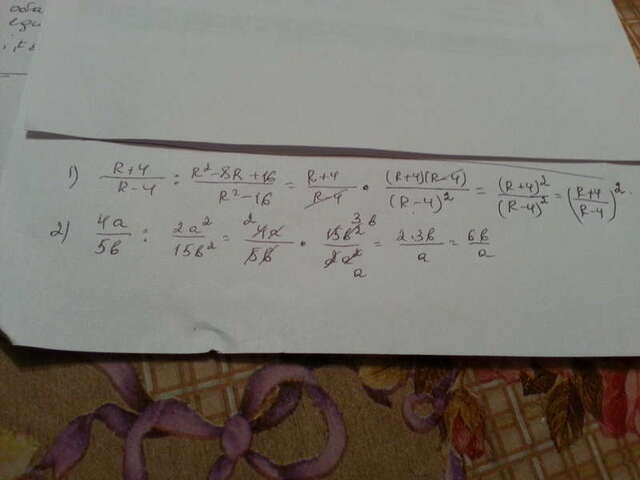 оба
еди
1) R+4/R-4 : R²-8R+16/R²-16 = R+4/R-4 · (R+4)(R-4)/(R-4)² = (R+4)²/(R-4)² = (R+4/R-4)²
2) 4a/5b : 2a²/15b² = 2 4a/5b · 15b² 3 b/2a² a = 2·3b/a = 6b/a